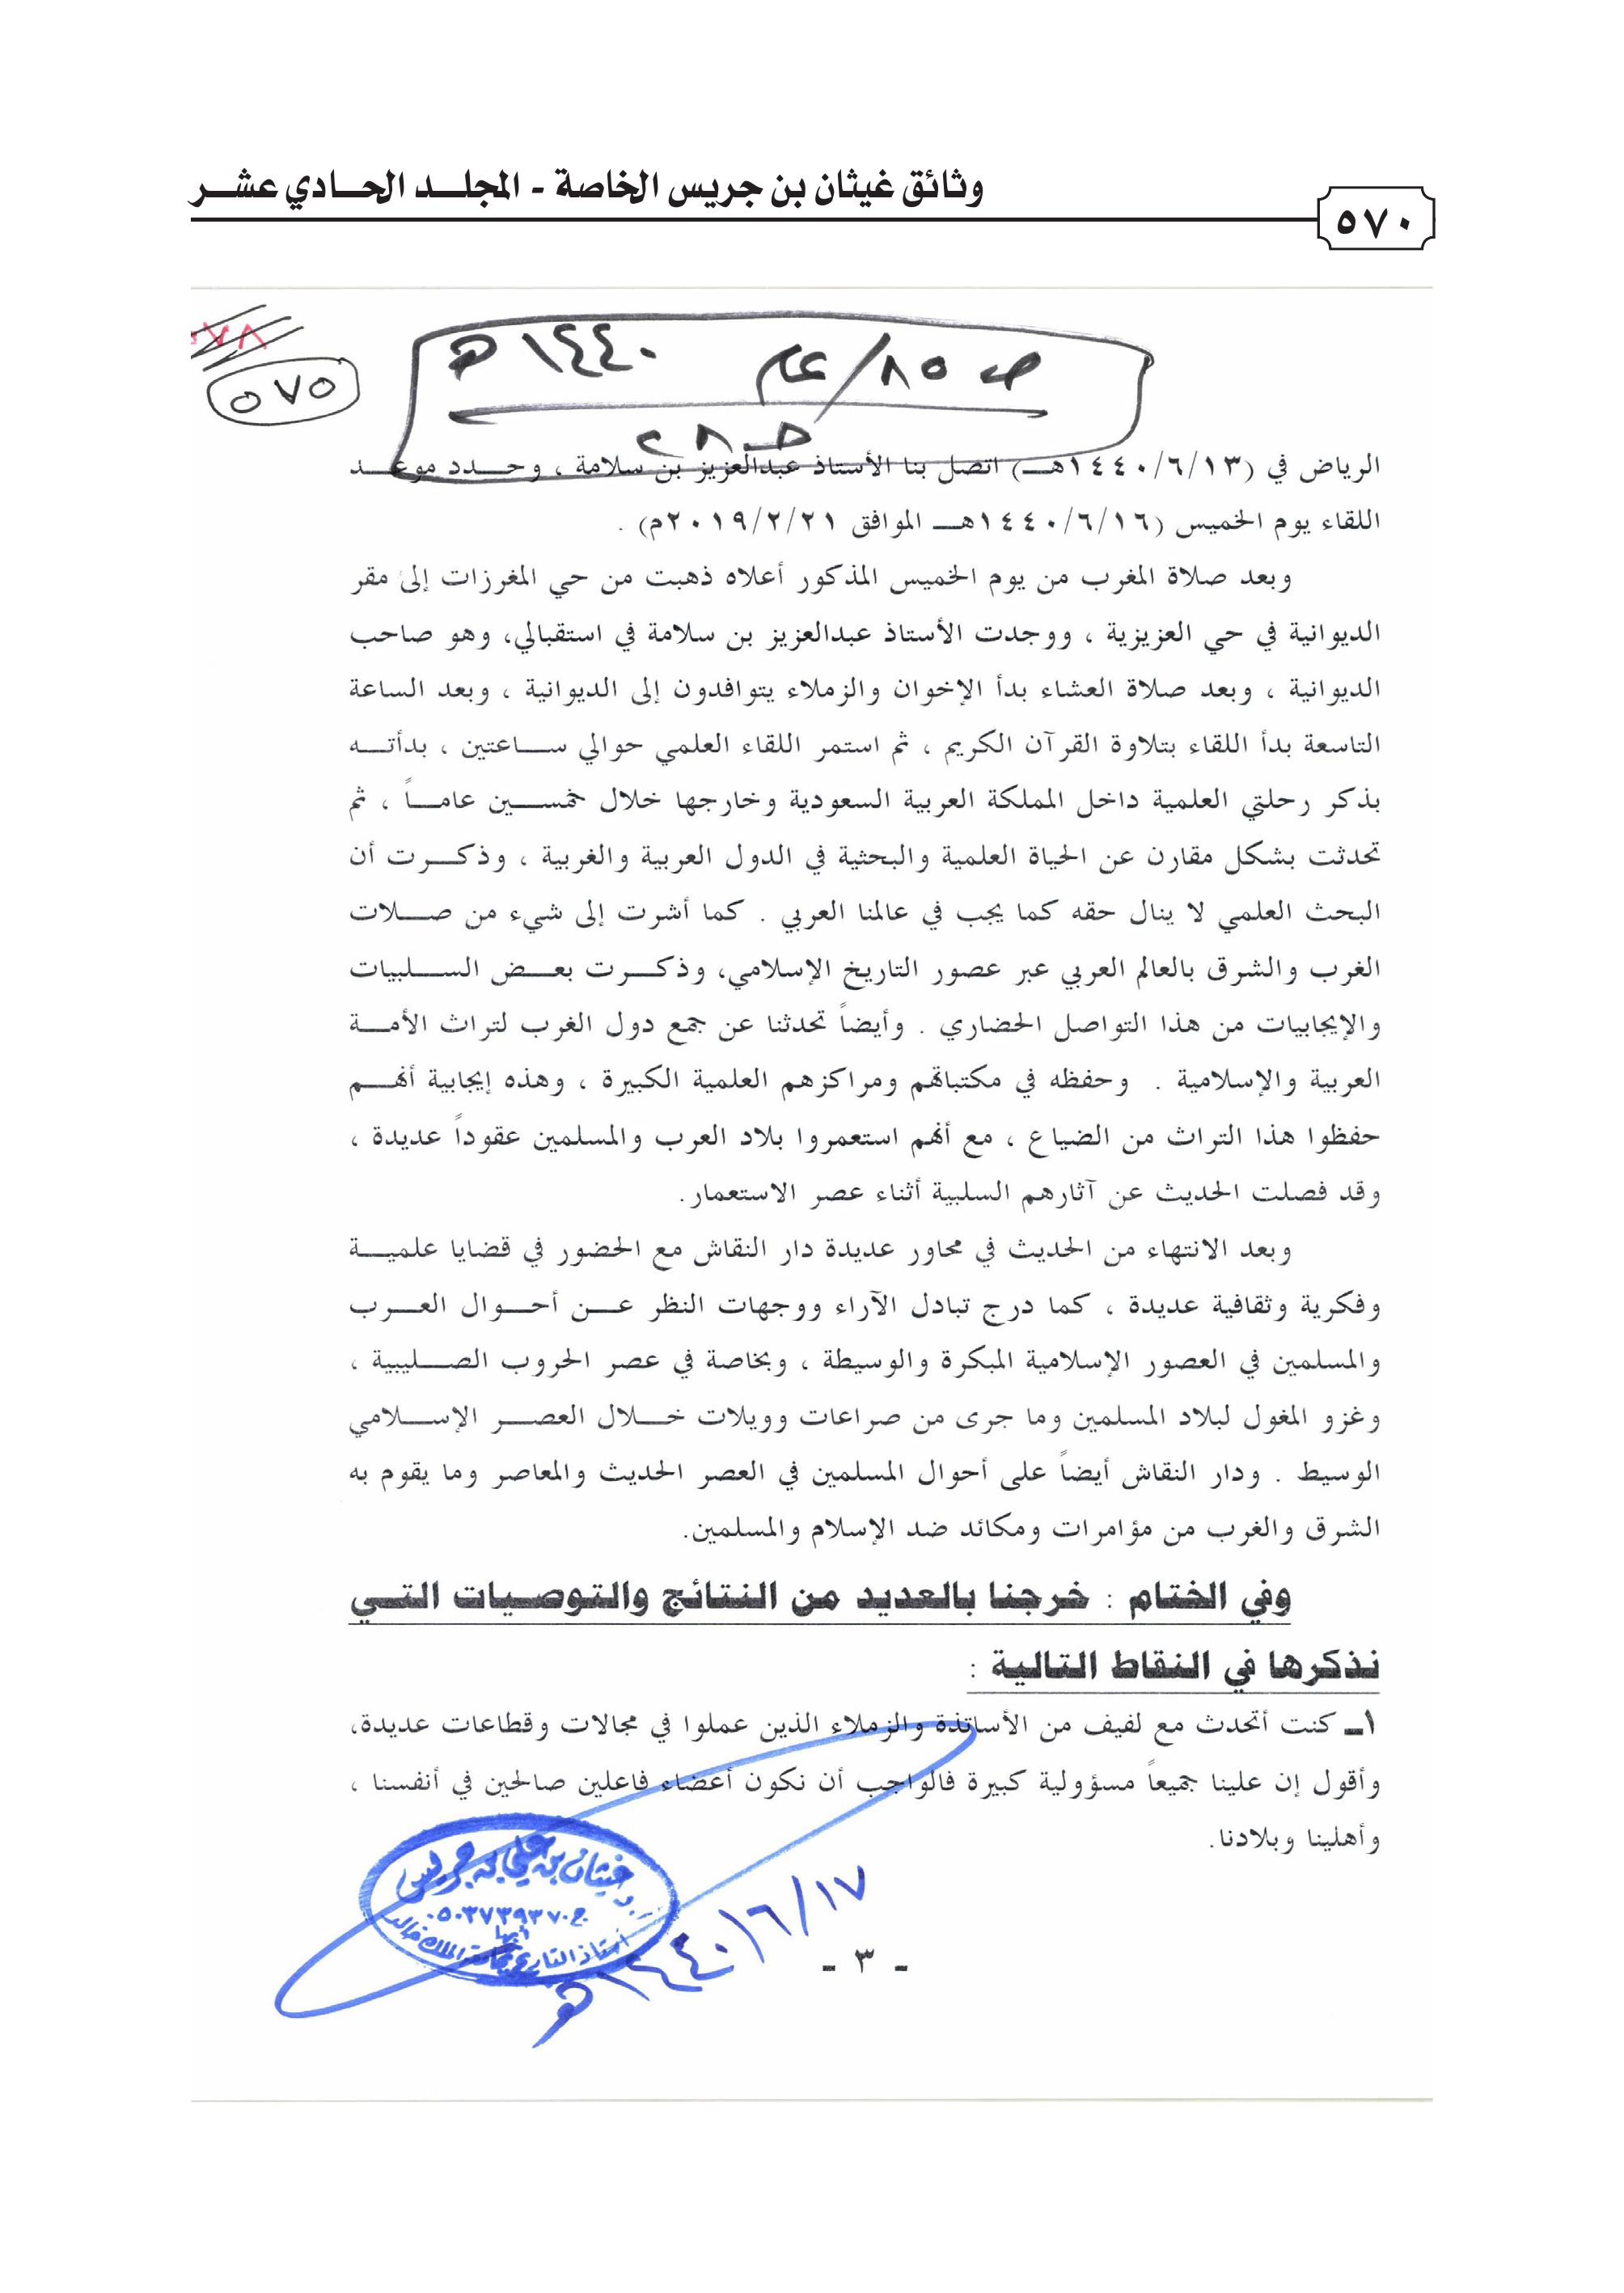 وثائق غيثان بن جريس الخاصة - المجلـــد الحـــادي عشـــر
٥٧٠
٥٧٥
ص ٨٥/عام ١٤٤٠هـ
الرياض في (١٤٤٠/٦/١٣هـــ) اتصل بنا الأستاذ عبدالعزيز بن سلامة ، وحـــدد موعـــد
اللقاء يوم الخميس (١٤٤٠/٦/١٦هـــ الموافق ٢٠١٩/٢/٢١م) .
وبعد صلاة المغرب من يوم الخميس المذكور أعلاه ذهبت من حي المغرزات إلى مقر
الديوانية في حي العزيزية ، ووجدت الأستاذ عبدالعزيز بن سلامة في استقبالي، وهو صاحب
الديوانية ، وبعد صلاة العشاء بدأ الإخوان والزملاء يتوافدون إلى الديوانية ، وبعد الساعة
التاسعة بدأ اللقاء بتلاوة القرآن الكريم ، ثم استمر اللقاء العلمي حوالي ســـاعتين ، بدأتـــه
بذكر رحلتي العلمية داخل المملكة العربية السعودية وخارجها خلال خمســـين عامـــاً ، ثم
تحدثت بشكل مقارن عن الحياة العلمية والبحثية في الدول العربية والغربية ، وذكـــرت أن
البحث العلمي لا ينال حقه كما يجب في عالمنا العربي . كما أشرت إلى شيء من صـــلات
الغرب والشرق بالعالم العربي عبر عصور التاريخ الإسلامي، وذكـــرت بعـــض الســـلبيات
والإيجابيات من هذا التواصل الحضاري . وأيضاً تحدثنا عن جمع دول الغرب لتراث الأمـــة
العربية والإسلامية . وحفظه في مكتباتهم ومراكزهم العلمية الكبيرة ، وهذه إيجابية أنهـــم
حفظوا هذا التراث من الضياع ، مع أنهم استعمروا بلاد العرب والمسلمين عقوداً عديدة ،
وقد فصلت الحديث عن آثارهم السلبية أثناء عصر الاستعمار.
وبعد الانتهاء من الحديث في محاور عديدة دار النقاش مع الحضور في قضايا علميـــة
وفكرية وثقافية عديدة ، كما درج تبادل الآراء ووجهات النظر عـــن أحـــوال العـــرب
والمسلمين في العصور الإسلامية المبكرة والوسيطة ، وبخاصة في عصر الحروب الصـــليبية ،
وغزو المغول لبلاد المسلمين وما جرى من صراعات وويلات خـــلال العصـــر الإســـلامي
الوسيط . ودار النقاش أيضاً على أحوال المسلمين في العصر الحديث والمعاصر وما يقوم به
الشرق والغرب من مؤامرات ومكائد ضد الإسلام والمسلمين.
وفي الختام : خرجنا بالعديد من النتائج والتوصيات التـــي
نذكرها في النقاط التالية :
١ـ كنت أتحدث مع لفيف من الأساتذة والزملاء الذين عملوا في مجالات وقطاعات عديدة،
وأقول إن علينا جميعاً مسؤولية كبيرة فالواجب أن نكون أعضاء فاعلين صالحين في أنفسنا ،
وأهلينا وبلادنا.
أ.د. غيثان بن علي بن جريس
ج ٠٥٠٣٧٣٩٣٧٠
أبها
أستاذ التاريخ بجامعة الملك خالد
١٤٤٠/٦/١٧هـ
- ٣ -